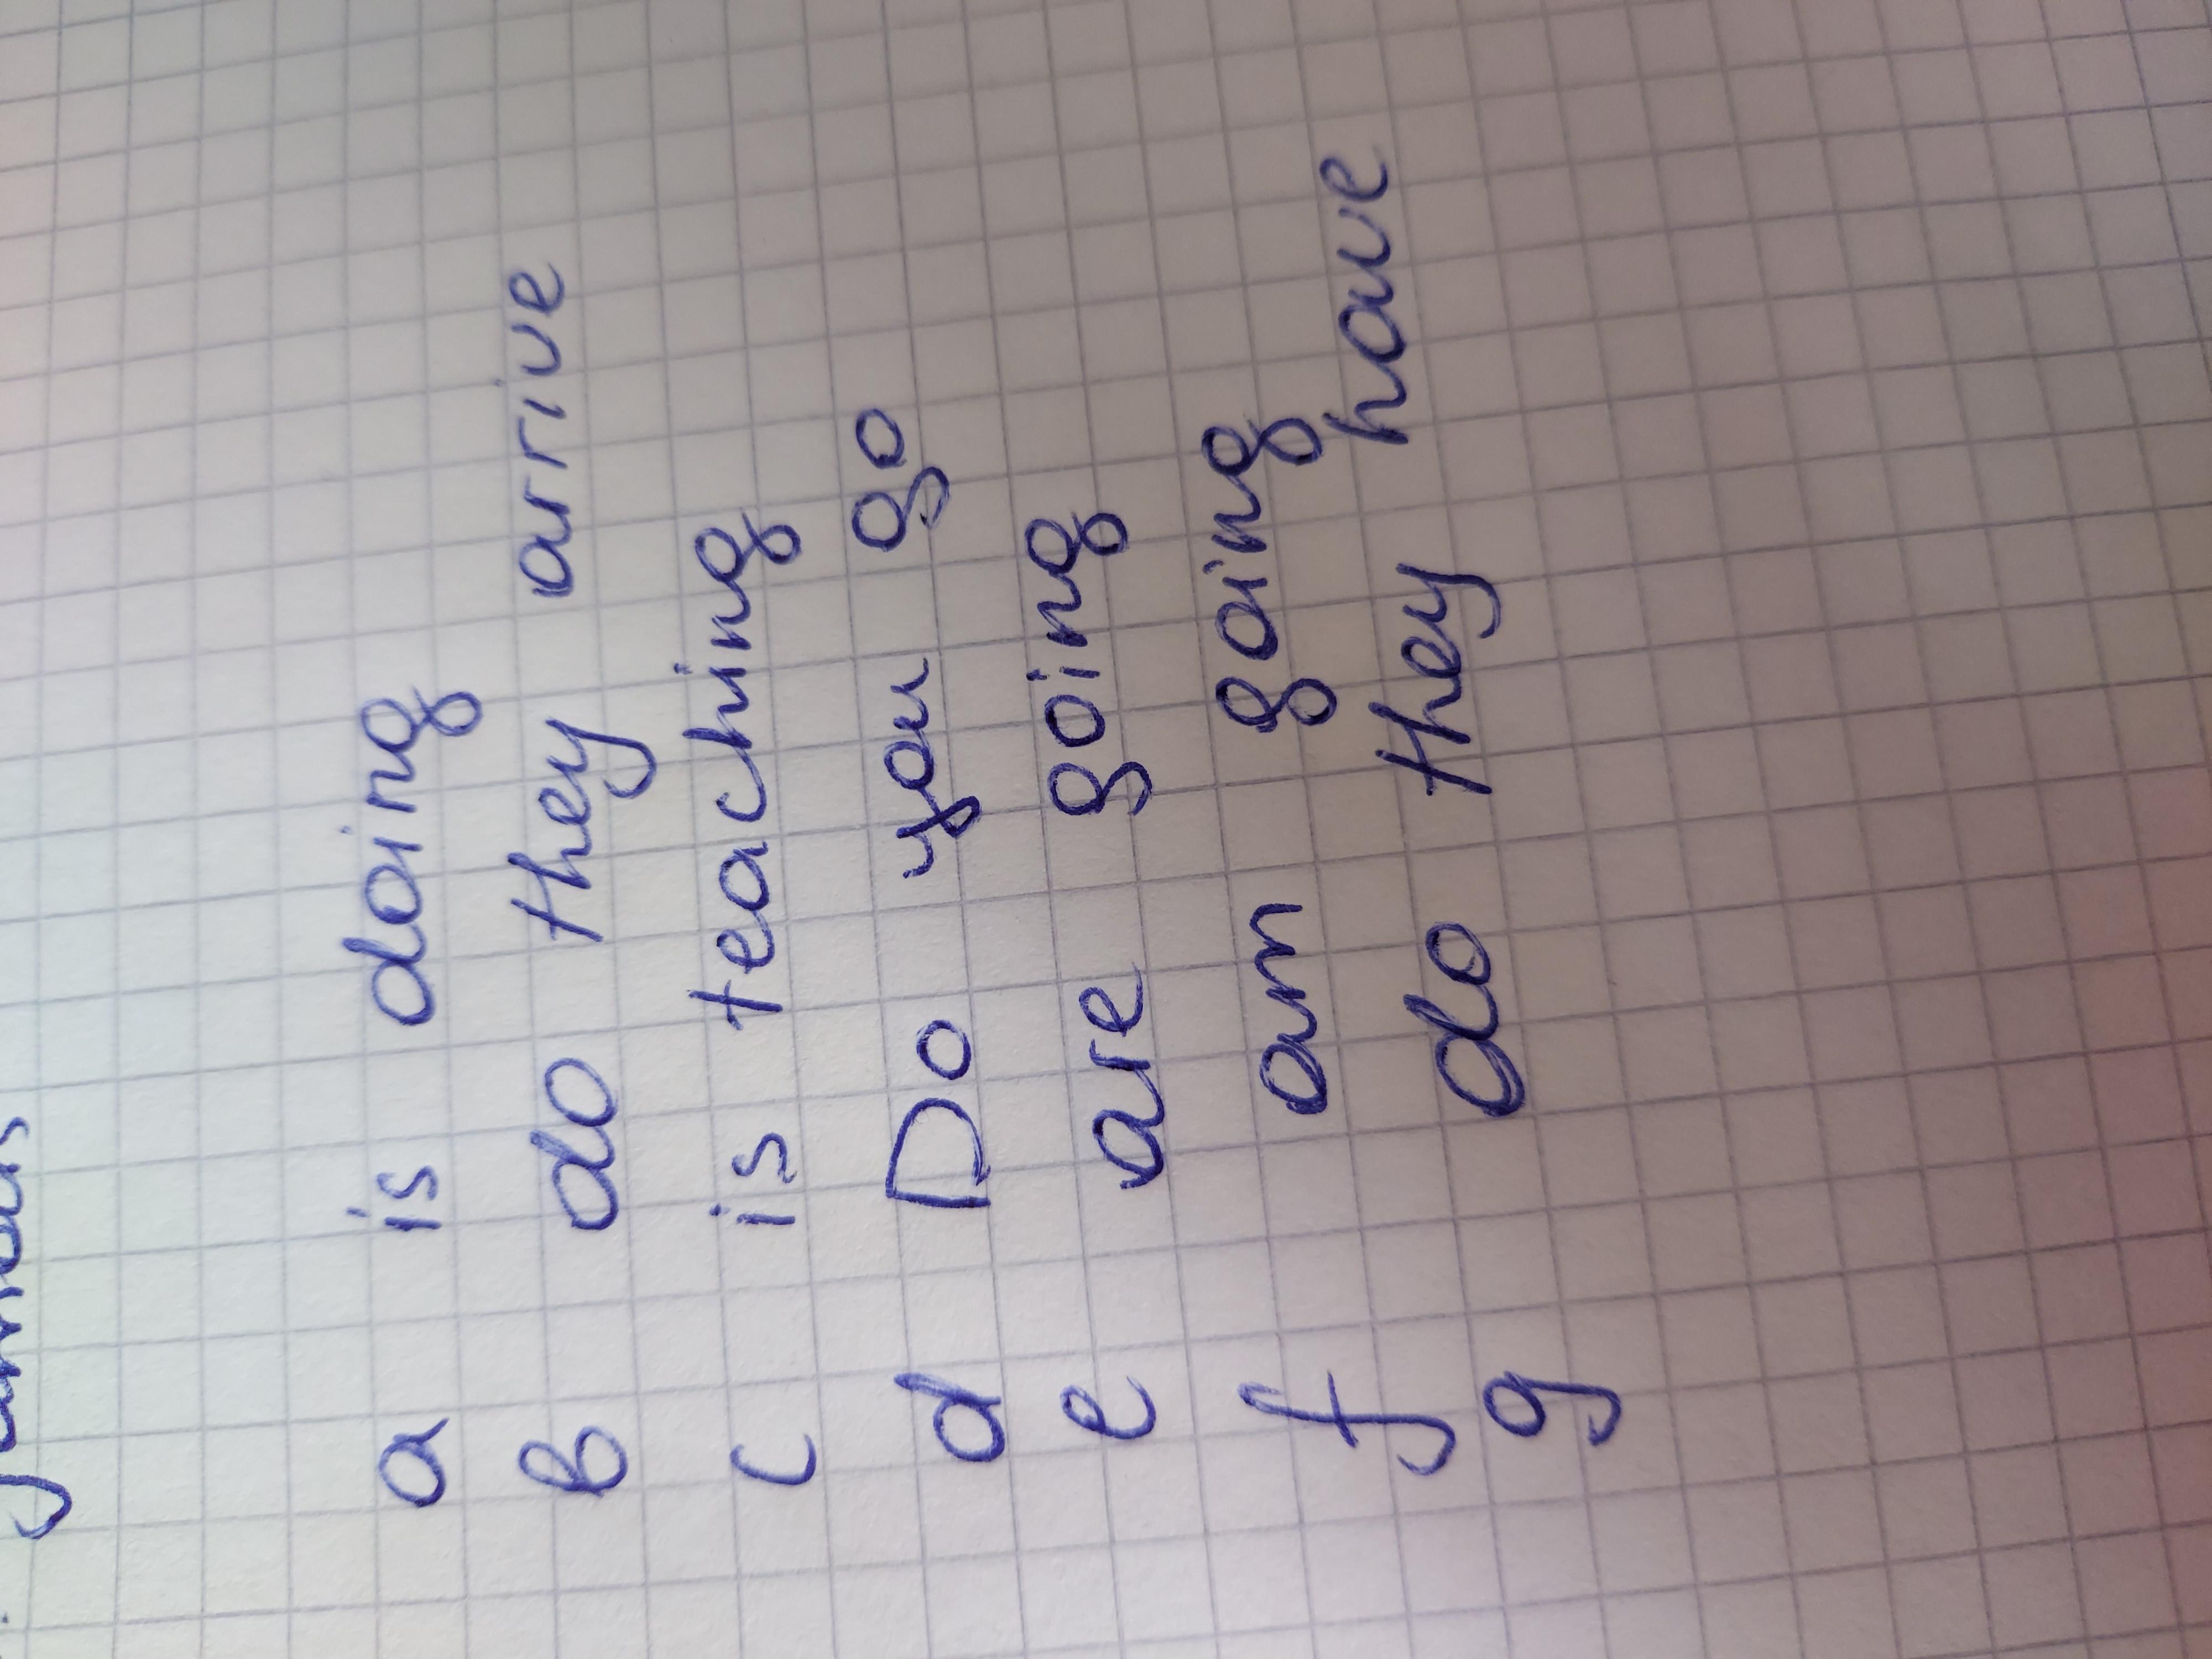 a is doing
b do they arrive
c is teaching
d Do you go
e are going
f am going
g do they have